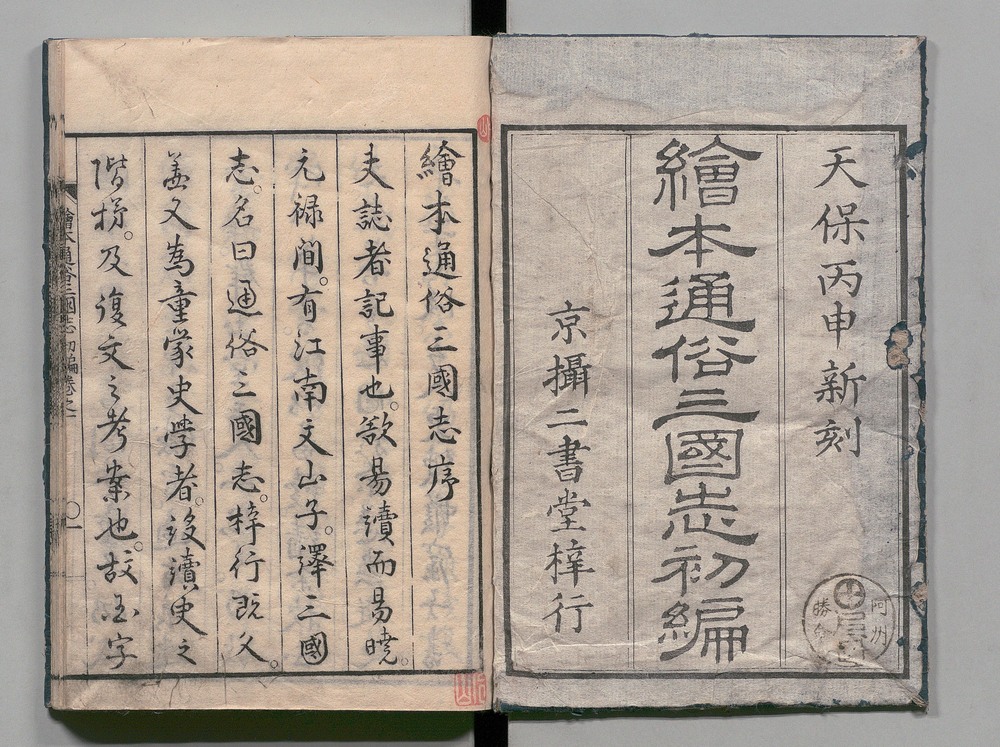 天保丙申新刻
繪本通俗三國志初編
京攝二書堂梓行
阿州
勝
繪本通俗三國志序
夫誌者記事也。欲易讀而易曉。
元禄间。有江南文山子。譯三國
志。名曰通俗三國志。梓行既久。
盖又為童蒙史學者。設讀史之
階梯。及復文之考案也。故玉字
繪本通俗三國志初編卷之一
〇一